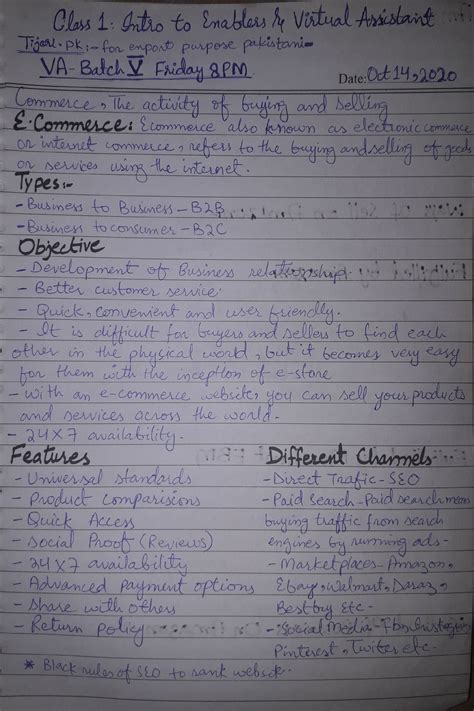 Class 1: Intro to Enablers & Virtual Assistant
Tijari.pk:- for export purpose pakistani
VA-Batch V Friday 8PM
Date: Oct 14, 2020
Commerce, The activity of buying and selling
E-Commerce: Ecommerce also known as electronic commerce
or internet commerce, refers to the buying and selling of goods
or services using the internet.
Types:-
- Business to Business - B2B
- Business to consumer - B2C
Objective
- Development of Business relationship.
- Better customer service.
- Quick, convenient and user friendly.
- It is difficult for buyers and sellers to find each
other in the physical world, but it becomes very easy
for them with the inception of e-store
- with an e-commerce website, you can sell your products
and services across the world.
- 24X7 availability.
Features
- Universal standards
- Product Comparisions
- Quick Access
- Social Proof (Reviews)
- 24X7 availability
- Advanced Payment options
- Share with others
- Return policy
Different Channels
- Direct Traafic - SEO
- Paid Search - Paid search means
buying traffic from search
engines by running ads -
- Marketplaces - Amazon,
Ebay, Walmart, Daraz,
Bestbuy etc -
- Social Media - fb, Instagram
Pinterest, Twiter etc -
* Black rules of SEO to rank website.